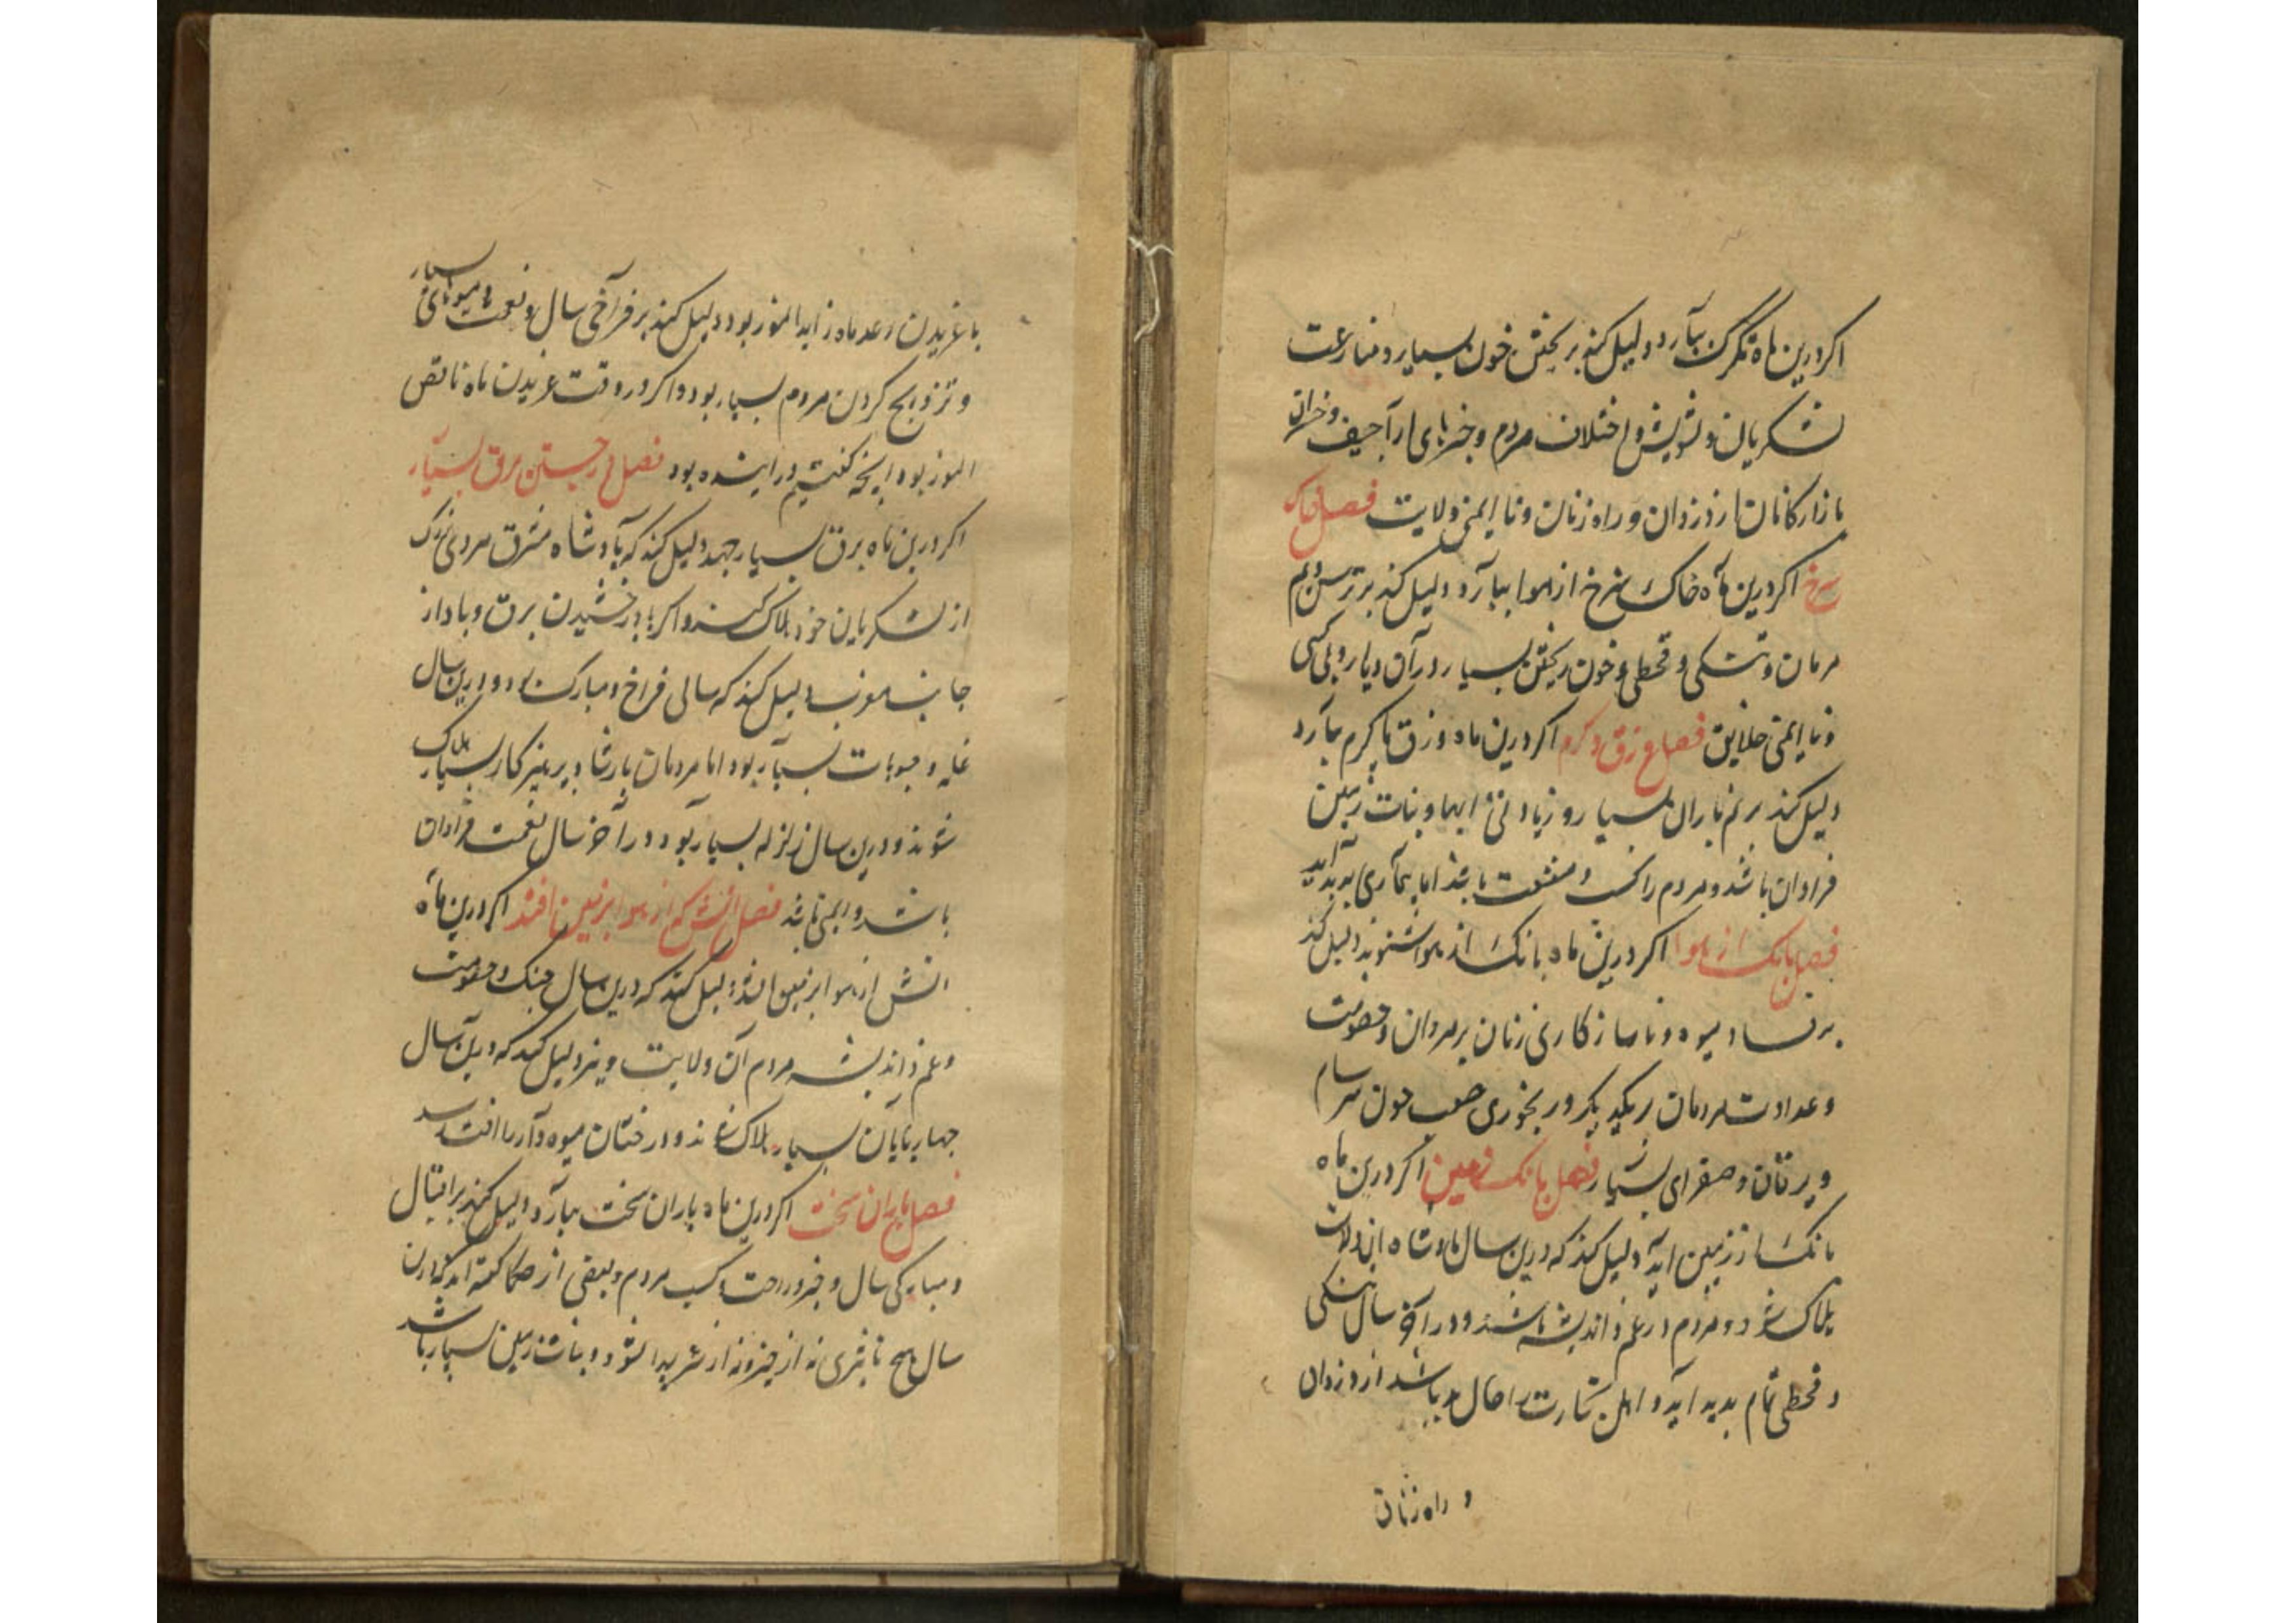 اکر درین ماه تکرک ببآرد دلیل کند بر ریختن خون بسیار و منازعت
لشکریان و تشویش و اختلاف مردم و خبرهای ارآجیف و خسران
بازارکانان از دزدان و راه زنان و نا ایمنی ولایت فصل خاک
سرخ اکر درین مآه خاک سرخ از هوا ببآرد دلیل کند بر ترس و بیم
مردمان و تنکی و قحطی و خون ریختن بسیار در آن دیار و بی کسی
و نا ایمنی خلایق فصل وزق و کرم اکر درین ماه وزق یا کرم ببآرد
دلیل کند بر نم باران بسیار و زیادتی ابها و نبات زمین
فراوان باشد و مردم را کسب و منفعت باشد اما بیمآری پدید آید
فصل بانک از هوا اکر درین ماه بانک از هوا شنوند دلیل کند
بر فساد میوه و ناسازکاری زنان بر مردان و خصومت
و عداوت مردمان بر یکدیکر و رنجوری صعب چون سرسام
و یرقان و صفرای بسیار فصل بانک زمین اکر درین ماه
بانک از زمین اید دلیل کند که درین سال پادشاه ان ولایت
هلاک شود و مردم در غم و اندیشه باشند و در آخر سال تنکی
و قحطی تمام پدید اید و اهل تجارت را حال بد باشد از دزدان
و راه زنان
با غریدن رعد ماه زاید النور بود دلیل کند بر فرآخی سال و نعمت و میوهای بسیار
و تزویج کردن مردم بسیار بود و اکر در وقت غریدن ماه ناقص
النور بود انچه کفتیم در اینده بود فصل در جستن برق بسیار
اکر درین ماه برق بسیار جهد دلیل کند که پآدشاه مشرق مردی بزرک
از لشکریان خود هلاک کند و اکر با درخشیدن برق و باد از
جانب جنوب دلیل کند که سالی فراخ و مبارک بود و درین سال
غله و حبوبات بسیآر بود اما مردمان پارسا و پرهیزکار بسیار هلاک
شوند و درین سال زلزله بسیار بود و در آخر سال نعمت فراوان
باشد و ایمنی باشد فصل اتش که از هوا بر زمین افتد اکر درین مآه
اتش از هوا بر زمین افتد دلیل کند که درین سال جنک و خصومت
و غم و اندیشه مردم آن ولایت و نیز دلیل کند که درین سال
چهارپایان بسیار هلاک شوند و درختان میوه دار را افت رسد
فصل باران سخت اکر درین ماه باران سخت ببآرد دلیل کند بر اقبال
و مبارکی سال و خیر و راحت و کسب مردم و بعضی از حکما کفته اند که درین
سال هیچ تاثیری نه از خیر و نه از شر پیدا نشود و نبات زمین بسیار باشد